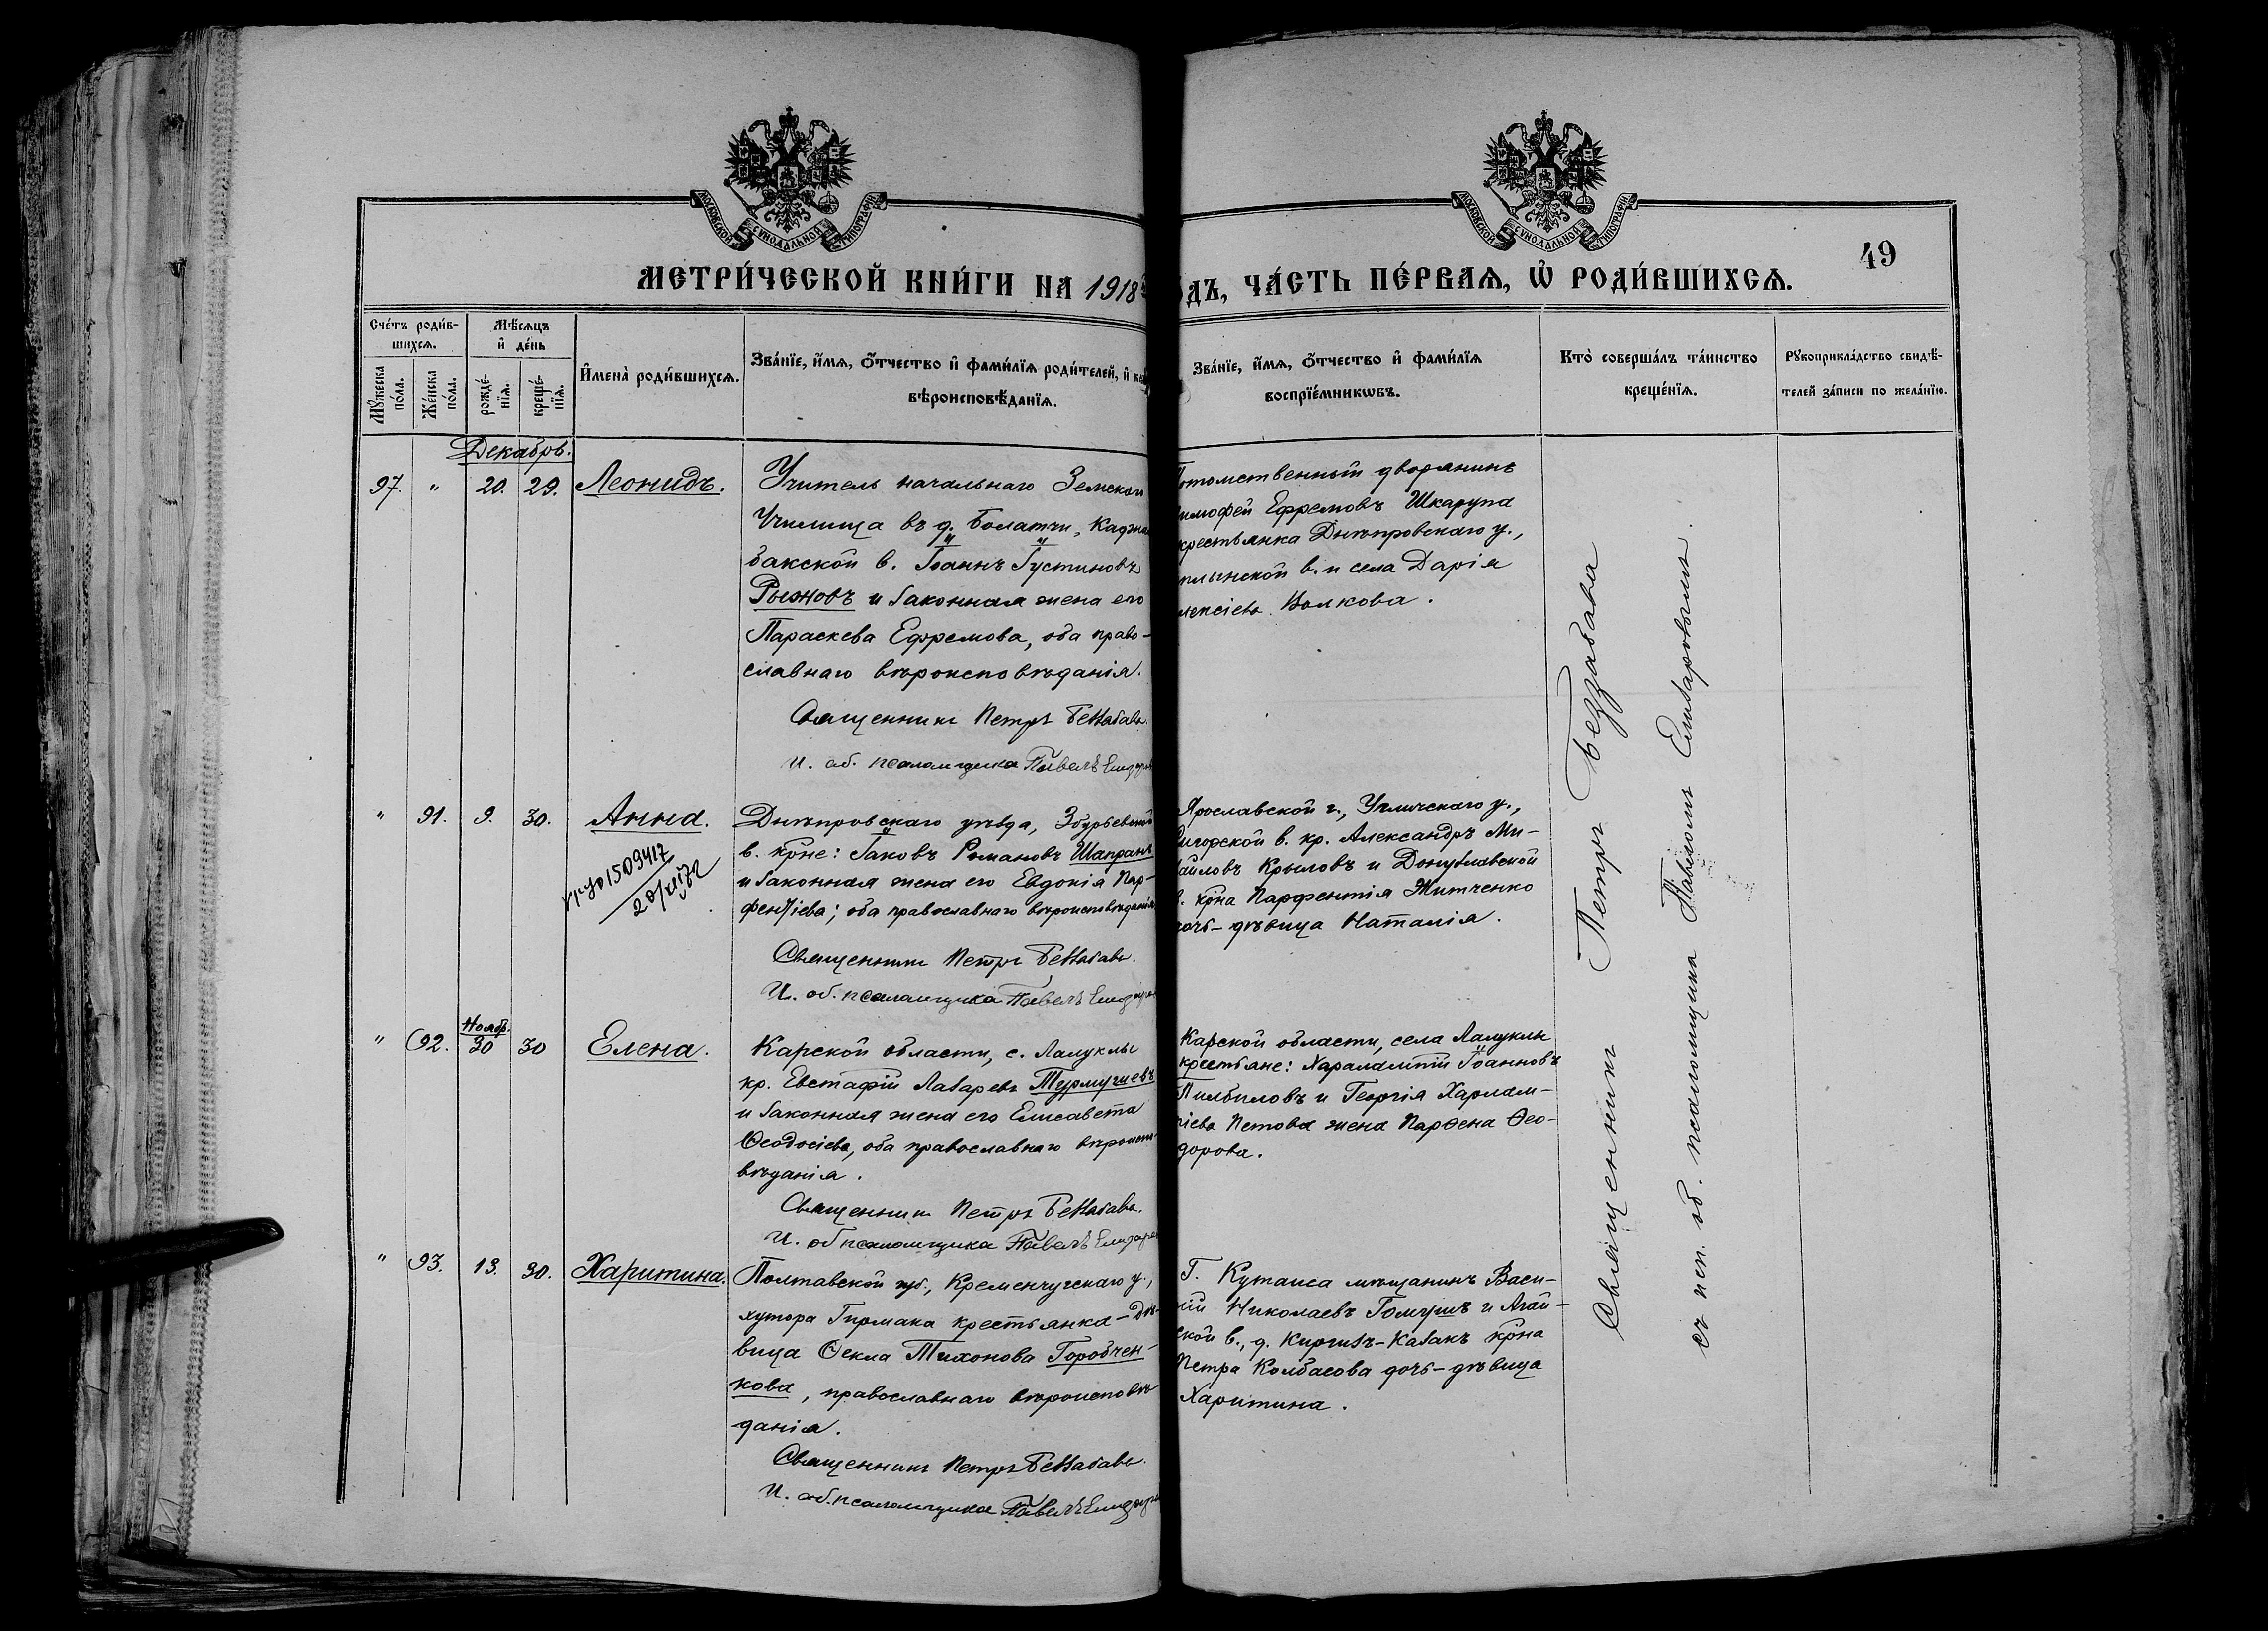 МОСКОВСКОЙ СѴНОДАЛЬНОЙ ТИПОГРАФІИ
МОСКОВСКОЙ СѴНОДАЛЬНОЙ ТИПОГРАФІИ
49
МЕТРИ́ЧЕСКОЙ КНИ́ГИ НА 1918
ДЪ, ЧА́СТЬ ПЕ́РВАѦ, Ѡ҆ РОДИ́ВШИХСѦ.
Сче́тъ роди́в-
шихсѧ.
Мꙋ́жеска по́ла.
Же́нска по́ла.
Мѣ́сѧцъ
и҆ де́нь
рожде́-
нїѧ.
креще́-
нїѧ.
И҆мена̀ роди́вшихсѧ.
Зва́нїе, и҆́мѧ, ѻ҆́тчество и҆ фами́лїѧ роди́телей, и҆ ка
вѣроисповѣ́данїѧ.
Зва́нїе, и҆́мѧ, ѻ҆́тчество и҆ фами́лїѧ
воспрїе́мникѡвъ.
Кто̀ соверша́лъ та́инство
креще́нїѧ.
Рꙋкоприкла́дство свидѣ́-
телей за́писи по жела́нїю.
Декабрь.
97. " 20. 29. Леонидъ.
Учитель начальнаго Земскаго
Училища въ д. Болатчи,
бакской в. Іоаннъ Іустиновъ
Рыжовъ и законная жена его
Параскева Ефремова, оба право-
славнаго вѣроисповѣданія.
Священникъ Петръ Беззабава.
И. об. псаломщика Павелъ
отомственный дворянинъ
имофей Ефремовъ Шкарупа
крестьянка Днѣпровскаго у.,
плынской в. и села Дарія
лексіева Волкова.
" 91. 9. 30. Анна.
1509417
Днѣпровскаго уѣзда, Збурьевской
в. крне: Іаковъ Романовъ Шапранъ
и законная жена его Евдокія Пар-
фентіева; оба православнаго вѣроисповѣданія
Священникъ Петръ Беззабава.
И. об. псаломщика Павелъ
Ярославской г., Угличскаго у.,
игорской в. кр. Александръ Ми-
айловъ Крыловъ и Донузлавской
в. крна Парфентія Житченко
дочь-дѣвица Наталія.
" 92. Ноябр. 30 30 Елена.
Карской области, с. Лалуклы
кр. Евстафій Лазаревъ Турмушевъ
и законная жена его Елисавета
Ѳеодосіева, оба православнаго вѣроиспо-
вѣданія.
Священникъ Петръ Беззабава.
И. об псаломщика Павелъ
Карской области, села Лалуклы
крестьяне: Харалампій Іоанновъ
Пилбиловъ и Георгія Харлам-
піева Петова жена Парѳена Ѳео-
дорова.
" 93. 13. 30. Харитина.
Полтавской губ., Кременчугскаго у.,
хутора Гирмана крестьянка-дѣ-
вица Ѳекла Тихонова Горобчен-
кова, православнаго вѣроисповѣ
данія.
Священникъ Петръ Беззабава.
И. об. псаломщика Павелъ
Г. Кутаиса мѣщанинъ Васи-
лій Николаевъ Гомушъ и Агай-
ской в., д. Киргизъ-Казакъ крна
Петра Колбасова дочь-дѣвица
Харитина.
Священникъ Петръ Беззабава
съ исп. об. псаломщика Павломъ Елизаровымъ.